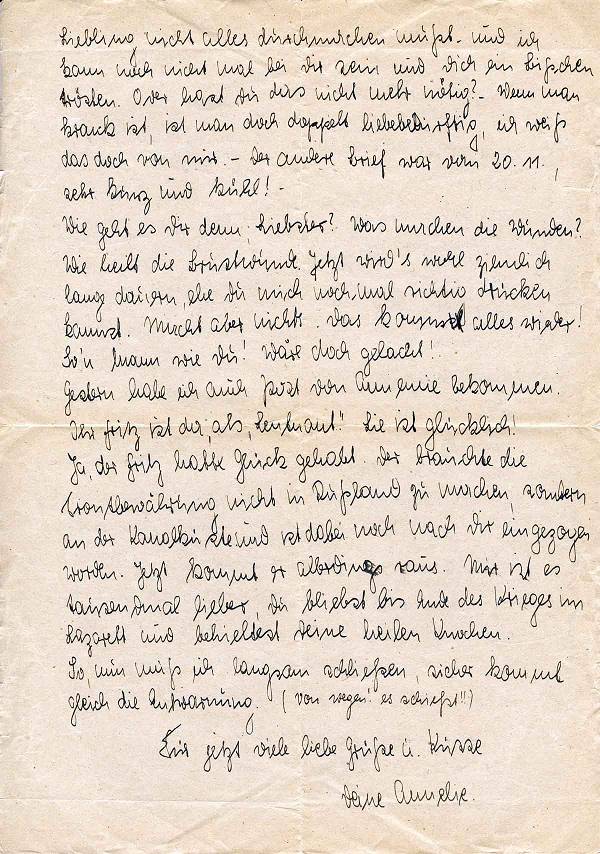 Liebling, nicht alles durchmachen mußt. und ich
kann noch nicht mal bei dir sein und dich ein bißchen
trösten. Oder hast du das nicht mehr nötig?- Wenn man
krank ist, ist man doch doppelt liebebedürftig, ich weiß
das doch von mir. - Der andere Brief war vom 20.11.,
sehr kurz und kühl! -
Wie geht es dir denn, Liebster? Was machen die Wunden?
Wie heilt die Brustwunde. Jetzt wird's wohl ziemlich
lange dauern, ehe du mich noch mal richtig drücken
kannst. Macht aber nichts. Das kommt alles wieder!
So'n Mann wie du! Wäre doch gelacht!
Gestern habe ich auch Post von Annemie bekommen.
Ihr Fritz ist da, als "Leutnant"! Sie ist glücklich!
Ja, der Fritz hatte Glück gehabt. Der brauchte die
Frontbewährung nicht in Rußland zu machen, sondern
an der Kanalküste und ist dabei noch nach dir eingezogen
worden. Jetzt kommt er allerdings raus. Mir ist es
tausendmal lieber, du bliebst bis Ende des Krieges im
Lazarett und behieltest deine heilen Knochen.
So, nun muß ich langsam schließen, sicher kommt
gleich die Entwarnung. (von wegen! es schießt!!)
Für jetzt viele liebe Grüße u. Küsse
deine